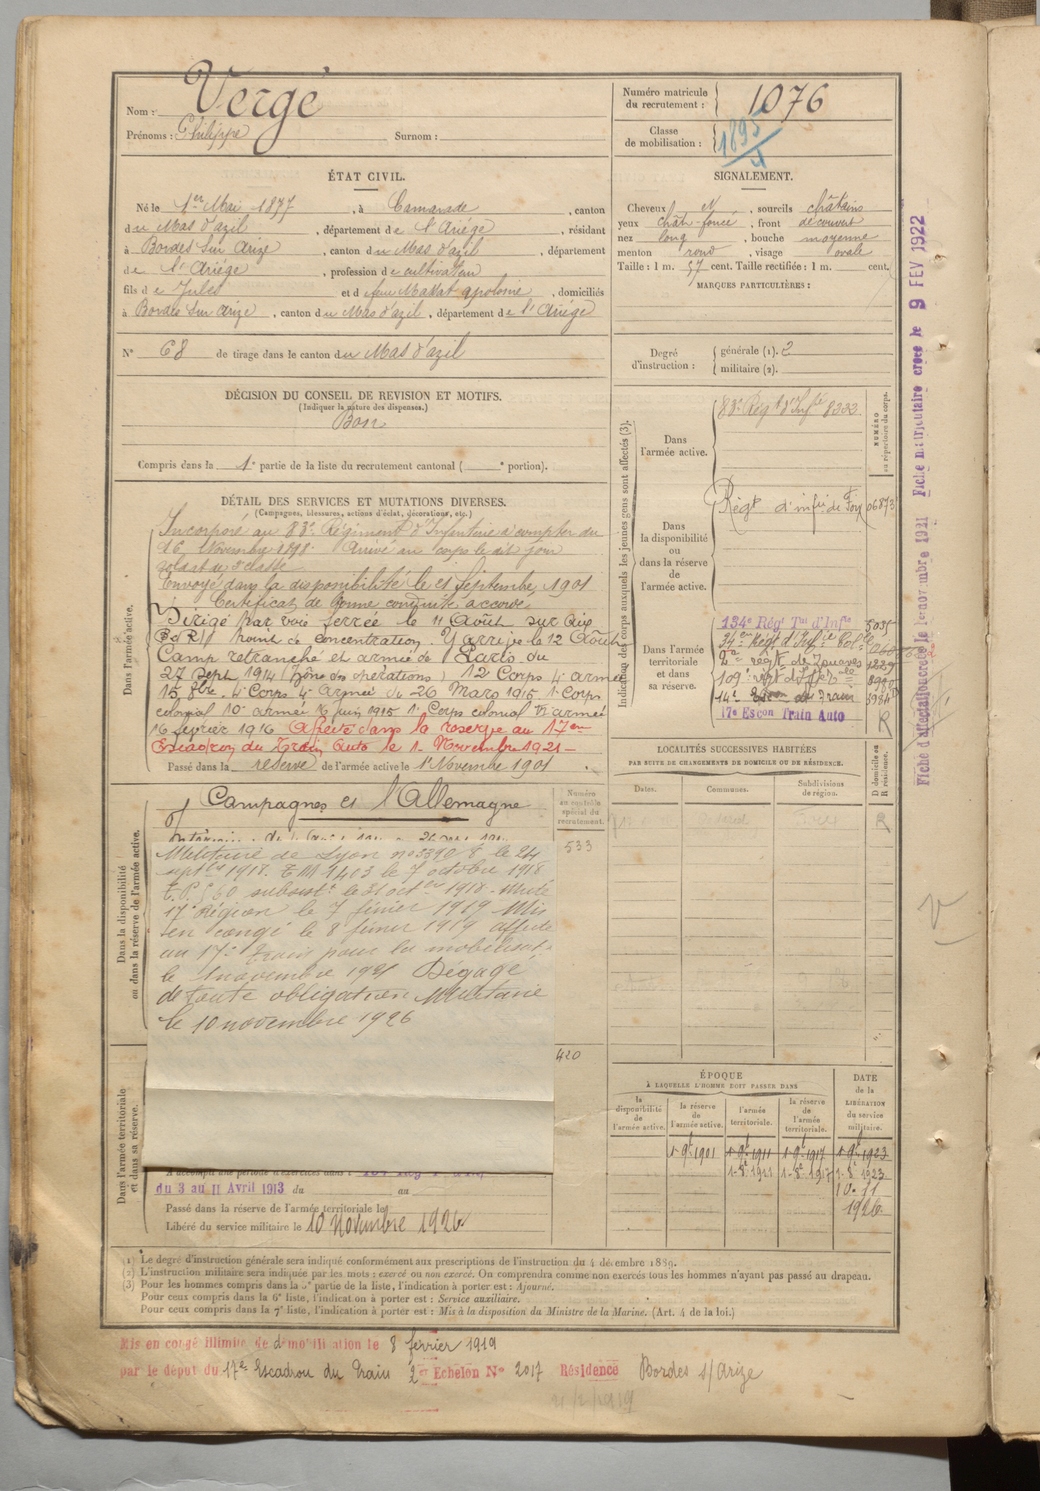 Nom : Vergé
Prénoms : Philippe Surnom :
Numéro matricule du recrutement : 1076
Classe de mobilisation : 1895
ÉTAT CIVIL.
Né le 1er Mai 1877, à Camarade, canton
du Mas d'azil, département de l'Ariège, résidant
à Bordes sur Arize, canton du Mas d'azil, département
de l'Ariège, profession de cultivateur
fils de Jules et de feue apolonie, domiciliés
à Bordes sur Arize, canton du Mas d'azil, département de l'Ariège
N° 68 de tirage dans le canton du Mas d'azil
SIGNALEMENT.
Cheveux N, sourcils châtains
yeux chât-foncé, front découvert
nez long, bouche moyenne
menton rond, visage ovale
Taille : 1 m. 57 cent. Taille rectifiée : 1 m. cent.
MARQUES PARTICULIÈRES :
Degré d'instruction : générale (1). 2
militaire (2).
DÉCISION DU CONSEIL DE REVISION ET MOTIFS.
(Indiquer la nature des dispenses.)
Bon
Compris dans la 1e partie de la liste du recrutement cantonal ( e portion).
DÉTAIL DES SERVICES ET MUTATIONS DIVERSES.
(Campagnes, blessures, actions d'éclat, décorations, etc.)
Dans l'armée active.
Incorporé au 83e Régiment d'Infanterie à compter du
16 Novembre 1898. Arrivé au corps le dit jour
soldat de 2e classe
Envoyé dans la disponibilité le 21 Septembre 1901
Certificat de bonne conduite accordé
Dirigé par voie ferrée le 11 Août sur Aix
(B d R) point de concentration. Y arrive le 12 Août
Camp retranché et armée de Paris du
27 Sept 1914 (Zône des opérations) 12 Corps 4e armée
15 8bre 4e Corps 4e Armée du 26 Mars 1915 1er Corps
colonial 10e armée 6 juin 1915 1er Corps colonial VI armée
16 février 1916 Affecté dans la réserve au 17eme
Escadron du Train Auto le 1er Novembre 1921
Passé dans la réserve de l'armée active le 1er Novembre 1901
Indication des corps auxquels les jeunes gens sont affectés (3).
NUMÉRO au répertoire du corps.
Dans l'armée active.
83e Régt d'Infie 8333
Dans la disponibilité ou dans la réserve de l'armée active.
Régt d'infie de Foix 06873
Dans l'armée territoriale et dans sa réserve.
134e Régt Tal d'Infie 5035
34eme Régt d'Infie Colle
2me régt de Zouaves
109e régt d'Infie
14e Escon du Train
17e Escon Train Auto R
Dans la disponibilité ou dans la réserve de l'armée active.
Campagnes ct l'Allemagne
Numéro au contrôle spécial du recrutement.
533
Militaire de Lyon n° 3390/8 le 24
septbre 1918. T M 1403 le 7 octobre 1918
17e Région le 7 février 1919 Mis
en congé le 8 février 1919 affecté
au 17e Train pour la mobilisat.
le 1 novembre 1921 Dégagé
de toute obligation Militaire
le 10 novembre 1926
420
LOCALITÉS SUCCESSIVES HABITÉES
PAR SUITE DE CHANGEMENTS DE DOMICILE OU DE RÉSIDENCE.
Dates. Communes. Subdivisions de région. D domicile ou R résidence.
R
Dans l'armée territoriale et dans sa réserve.
A accompli une période d'exercices dans :
du 3 au 11 Avril 1913 du au
Passé dans la réserve de l'armée territoriale le
Libéré du service militaire le 10 Novembre 1926
ÉPOQUE
À LAQUELLE L'HOMME DOIT PASSER DANS
la disponibilité de l'armée active.
la réserve de l'armée active.
l'armée territoriale.
la réserve de l'armée territoriale.
DATE de la LIBÉRATION du service militaire.
1-9b 1901 1-9b 1911 1-9b 1917 1-9b 1923
1-8b 1911 1-8b 1917 1-8b 1923
10-11
1926
(1) Le degré d'instruction générale sera indiqué conformément aux prescriptions de l'instruction du 4 décembre 1889.
(2) L'instruction militaire sera indiquée par les mots : exercé ou non exercé. On comprendra comme non exercés tous les hommes n'ayant pas passé au drapeau.
(3) Pour les hommes compris dans la 5e partie de la liste, l'indication à porter est : Ajourné.
Pour ceux compris dans la 6e liste, l'indication à porter est : Service auxiliaire.
Pour ceux compris dans la 7e liste, l'indication à porter est : Mis à la disposition du Ministre de la Marine. (Art. 4 de la loi.)
Mis en congé illimité de démobilisation le 8 février 1919
par le dépôt du 17e Escadron du Train 2e Echelon N° 2017 Résidence Bordes s/Arize
Fiche d'affectation créée le 1er novembre 1921 Fiche matriculaire créée le 9 FEV 1922